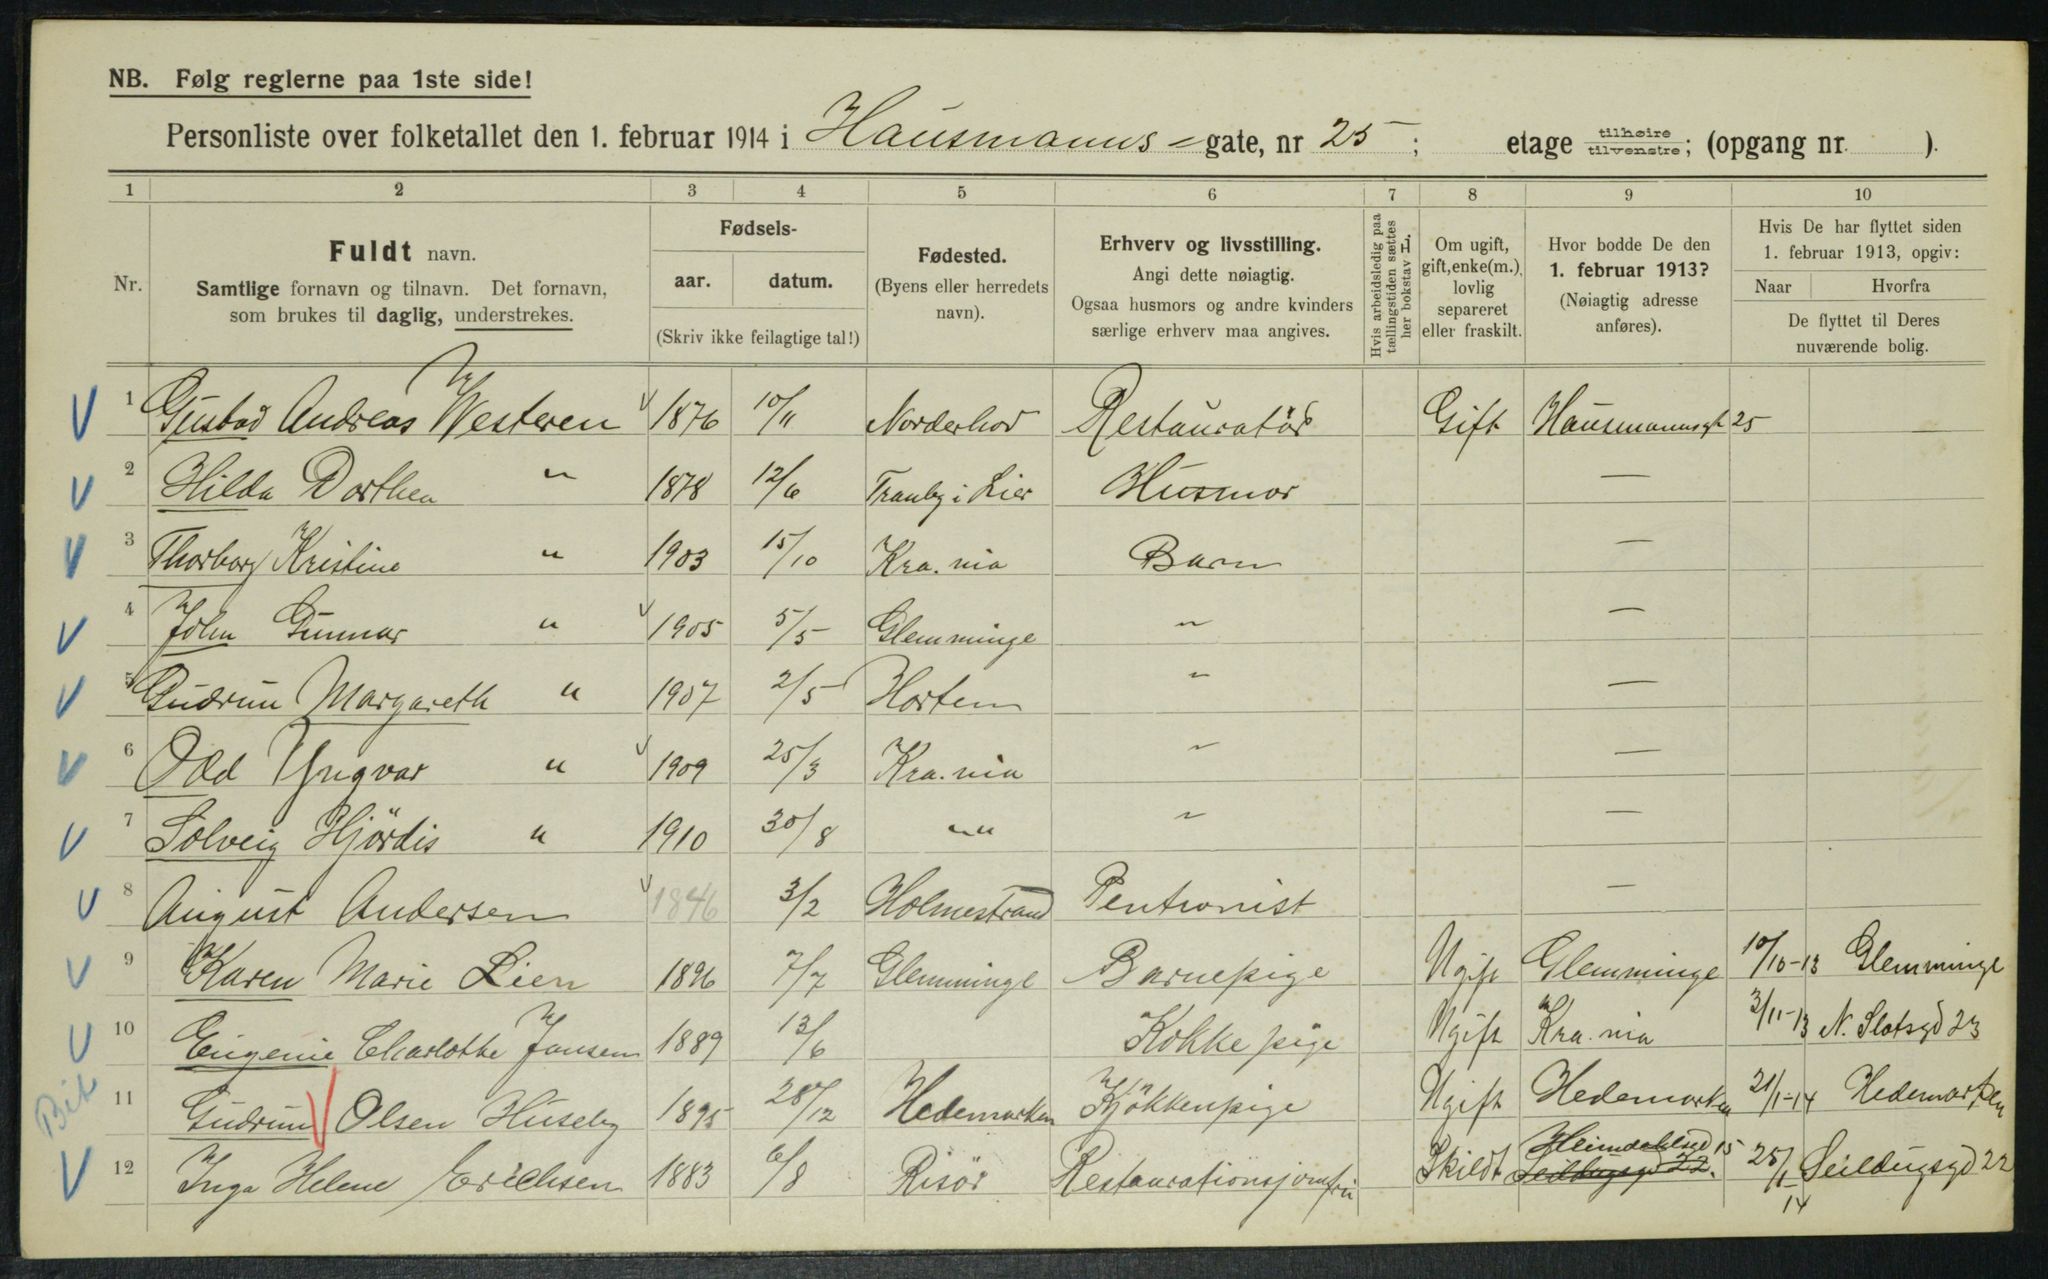 NB. Følg reglerne paa 1ste side!
Personliste over folketallet den 1. februar 1914 i Hausmanns - gate, nr 25 ; etage tilhøire / tilvenstre; (opgang nr. ).
1 2 3 4 5 6 7 8 9 10
Nr.
Fuldt navn.
Samtlige fornavn og tilnavn. Det fornavn,
som brukes til daglig, understrekes.
Fødsels-
aar. datum.
(Skriv ikke feilagtige tal!)
Fødested.
(Byens eller herredets
navn).
Erhverv og livsstilling.
Angi dette nøiagtig.
Ogsaa husmors og andre kvinders
særlige erhverv maa angives.
Hvis arbeidsledig paa
tællingstiden sættes
her bokstav L.
Om ugift,
gift, enke(m.),
lovlig
separeret
eller fraskilt.
Hvor bodde De den
1. februar 1913?
(Nøiagtig adresse
anføres).
Hvis De har flyttet siden
1. februar 1913, opgiv:
Naar Hvorfra
De flyttet til Deres
nuværende bolig.
1 Gustav Andreas Westeren 1876 10/11 Norderhov Restauratør Gift Hausmannsgt 25
2 Hilda Dorthea " 1878 12/6 Tranby i Lier Husmor —
3 Thorborg Kristine " 1903 15/10 Kra.nia Barn —
4 John Gunnar " 1905 5/5 Glemminge " —
5 Gudrun Margareth " 1907 2/5 Horten " —
6 Odd Yngvar " 1909 25/3 Kra.nia " —
7 Solveig Hjördis " 1910 30/8 "" " —
8 August Andersen 1846 3/2 Holmestrand Pentionist —
9 Karen Marie Lien 1896 7/7 Glemminge Barnepige Ugift Glemminge 10/10-13 Glemminge
10 Eugenie Charlothe Jansen 1889 13/6 Kokke pige Ugift Kra.nia 3/11-13 N. Slotsgd 23
11 Gudrun Olsen Huseby 1895 28/12 Hedemarken Kjøkkenpige Ugift Hedemarken 21/1-14 Hedemarken
12 Inga Helene Erichsen 1883 6/8 Risör Restaurationsjomfru Skildt Heimdalsgd 15 Seildugsgd 22. 25/1-14 Seildugsgd 22